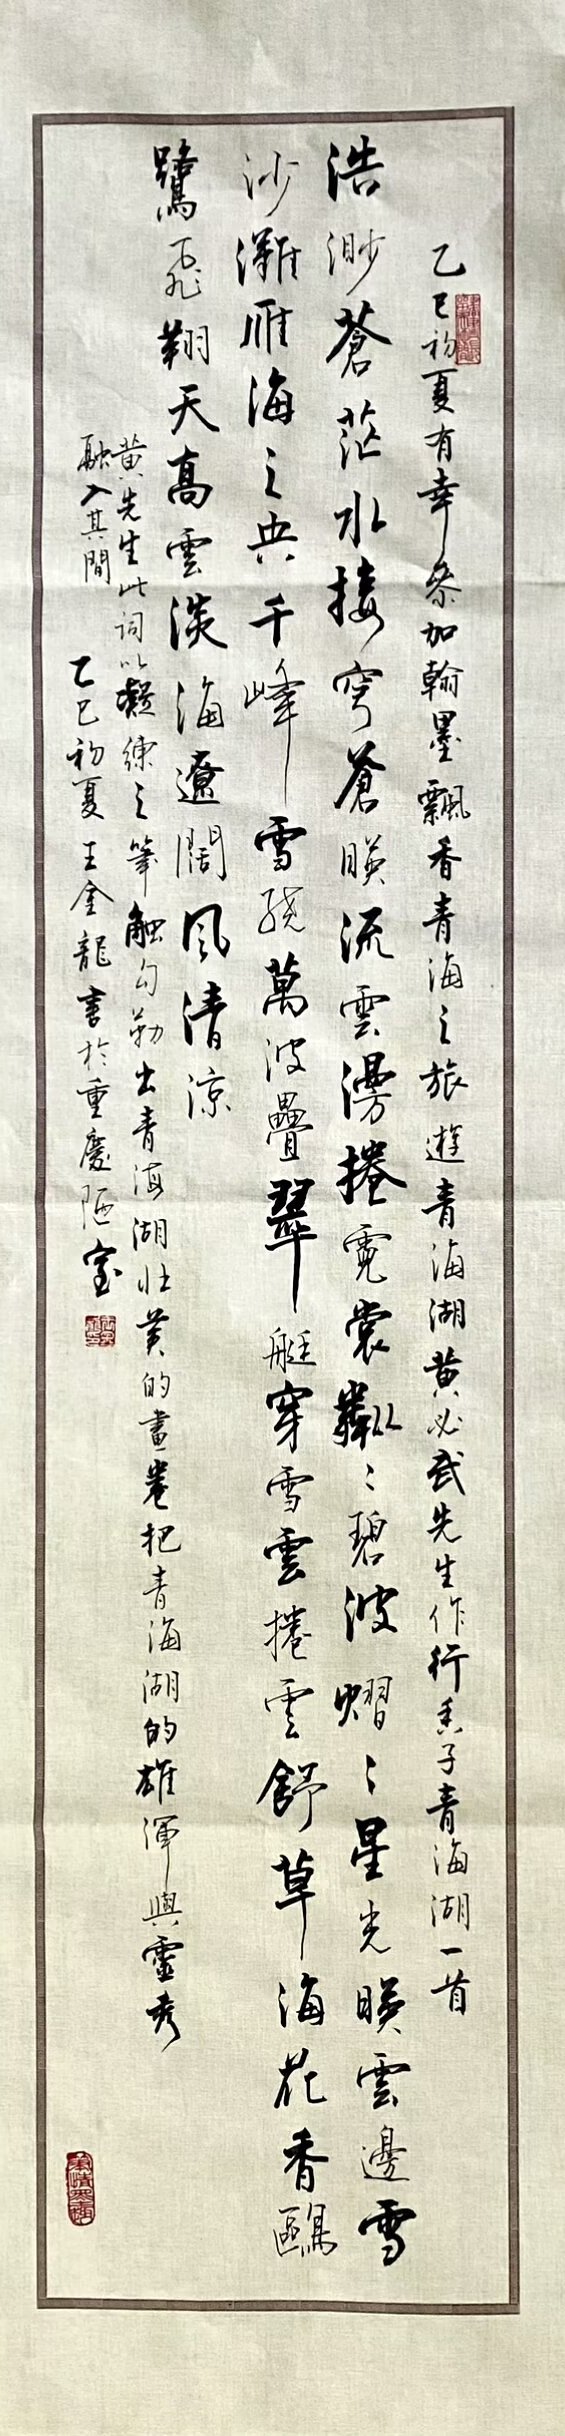 乙巳初夏有幸參加翰墨飄香青海之旅遊青海湖黄必武先生作行香子青海湖一首
浩渺蒼茫水接穹蒼映流雲漫捲霓裳粼〻碧波熠〻星光映雲邊雪
沙灘雁海之央千峰雪繞萬波疊翠艇穿雪雲捲雲舒草海花香鷗
鷺飛翔天高雲淡海遼闊風清涼
黄先生此詞以凝练之筆觸勾勒出青海湖壮美的畫卷把青海湖的雄渾與靈秀
融入其間
乙巳初夏王金龍書於重慶陋室